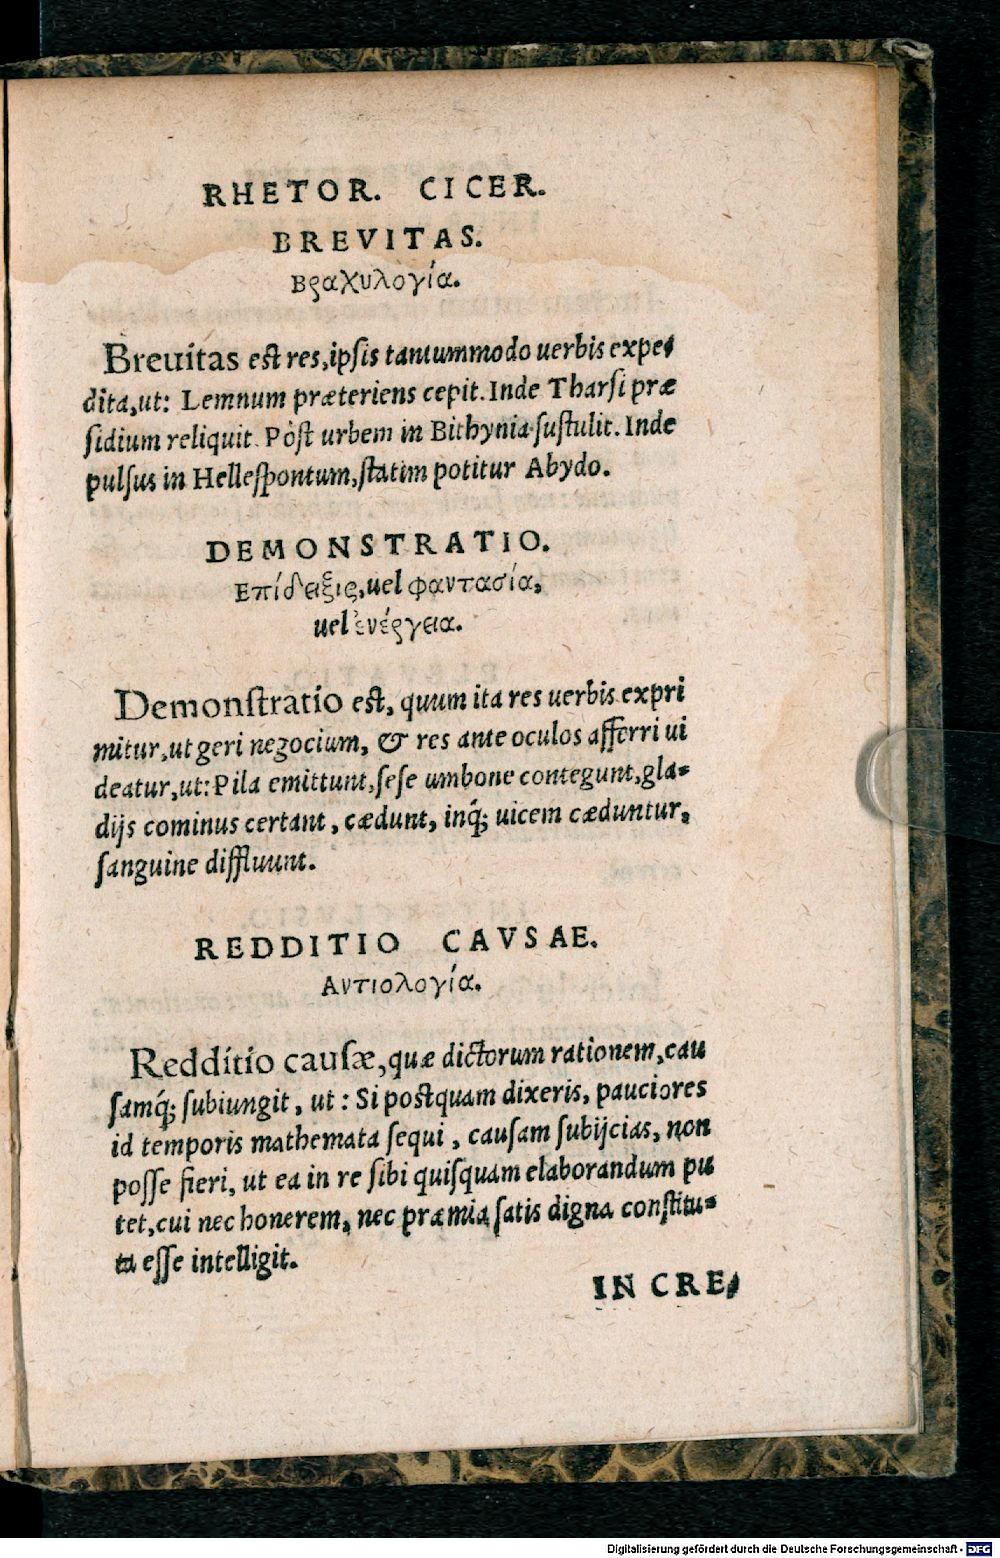 RHETOR. CICER.
BREVITAS.
Βραχυλογία.
Breuitas est res, ipsis tantummodo uerbis expe-
dita, ut: Lemnum præteriens cepit. Inde Tharsi præ
sidium reliquit. Pòst urbem in Bithynia sustulit. Inde
pulsus in Hellespontum, statim potitur Abydo.
DEMONSTRATIO.
Επίδειξις, uel φαντασία,
uel ἐνέργεια.
Demonstratio est, quum ita res uerbis expri
mitur, ut geri negocium, & res ante oculos afferri ui
deatur, ut: Pila emittunt, sese umbone contegunt, gla-
dijs cominus certant, cædunt, inq́; uicem cæduntur,
sanguine diffluunt.
REDDITIO CAVSAE.
Αντιολογία.
Redditio causæ, quæ dictorum rationem, cau
samq́; subiungit, ut: Si postquam dixeris, pauciores
id temporis mathemata sequi, causam subijcias, non
posse fieri, ut ea in re sibi quisquam elaborandum pu
tet, cui nec honerem, nec præmia satis digna constitu-
ta esse intelligit.
INCRE-
Digitalisierung gefördert durch die Deutsche Forschungsgemeinschaft - DFG